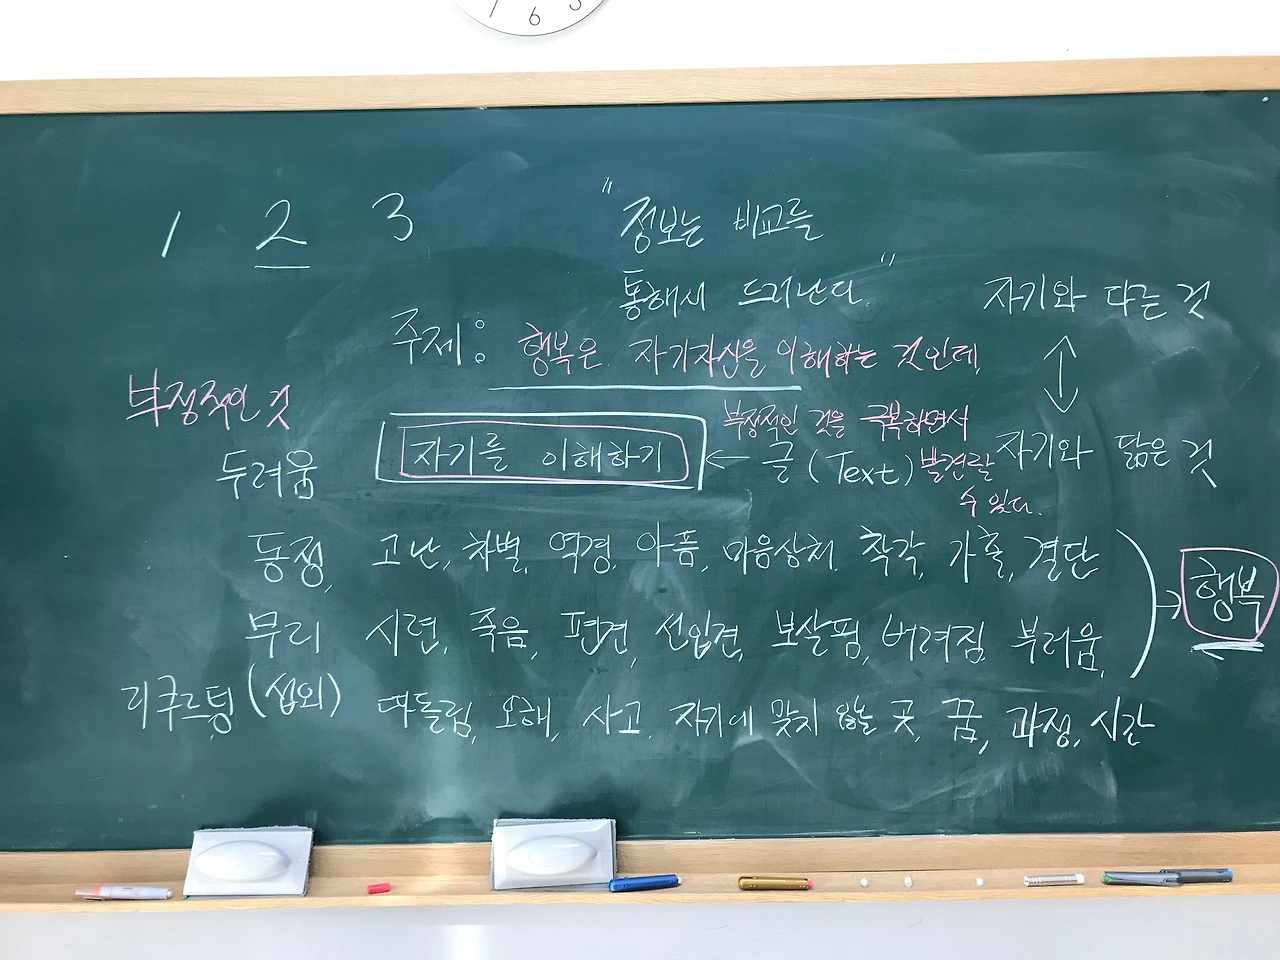 6
1 2 3
"정보는 비교를
통해서 드러난다."
자기와 다른 것
주제: 행복은 자기자신을 이해하는 것인데,
부정적인 것
부정적인 것을 극복하면서
자기를 이해하기 ← 글(Text) 발견할
수 있다.
자기와 닮은 것
두려움
동정, 고난, 차별, 역경, 아픔, 마음상처, 착각, 가출, 결단
→ 행복
무리 시련, 죽음, 편견, 선입견, 보살핌, 버려짐, 부러움,
리쿠르팅(섭외) 따돌림, 오해, 사고, 자기에 맞지 않는 곳, 꿈, 과정, 시간